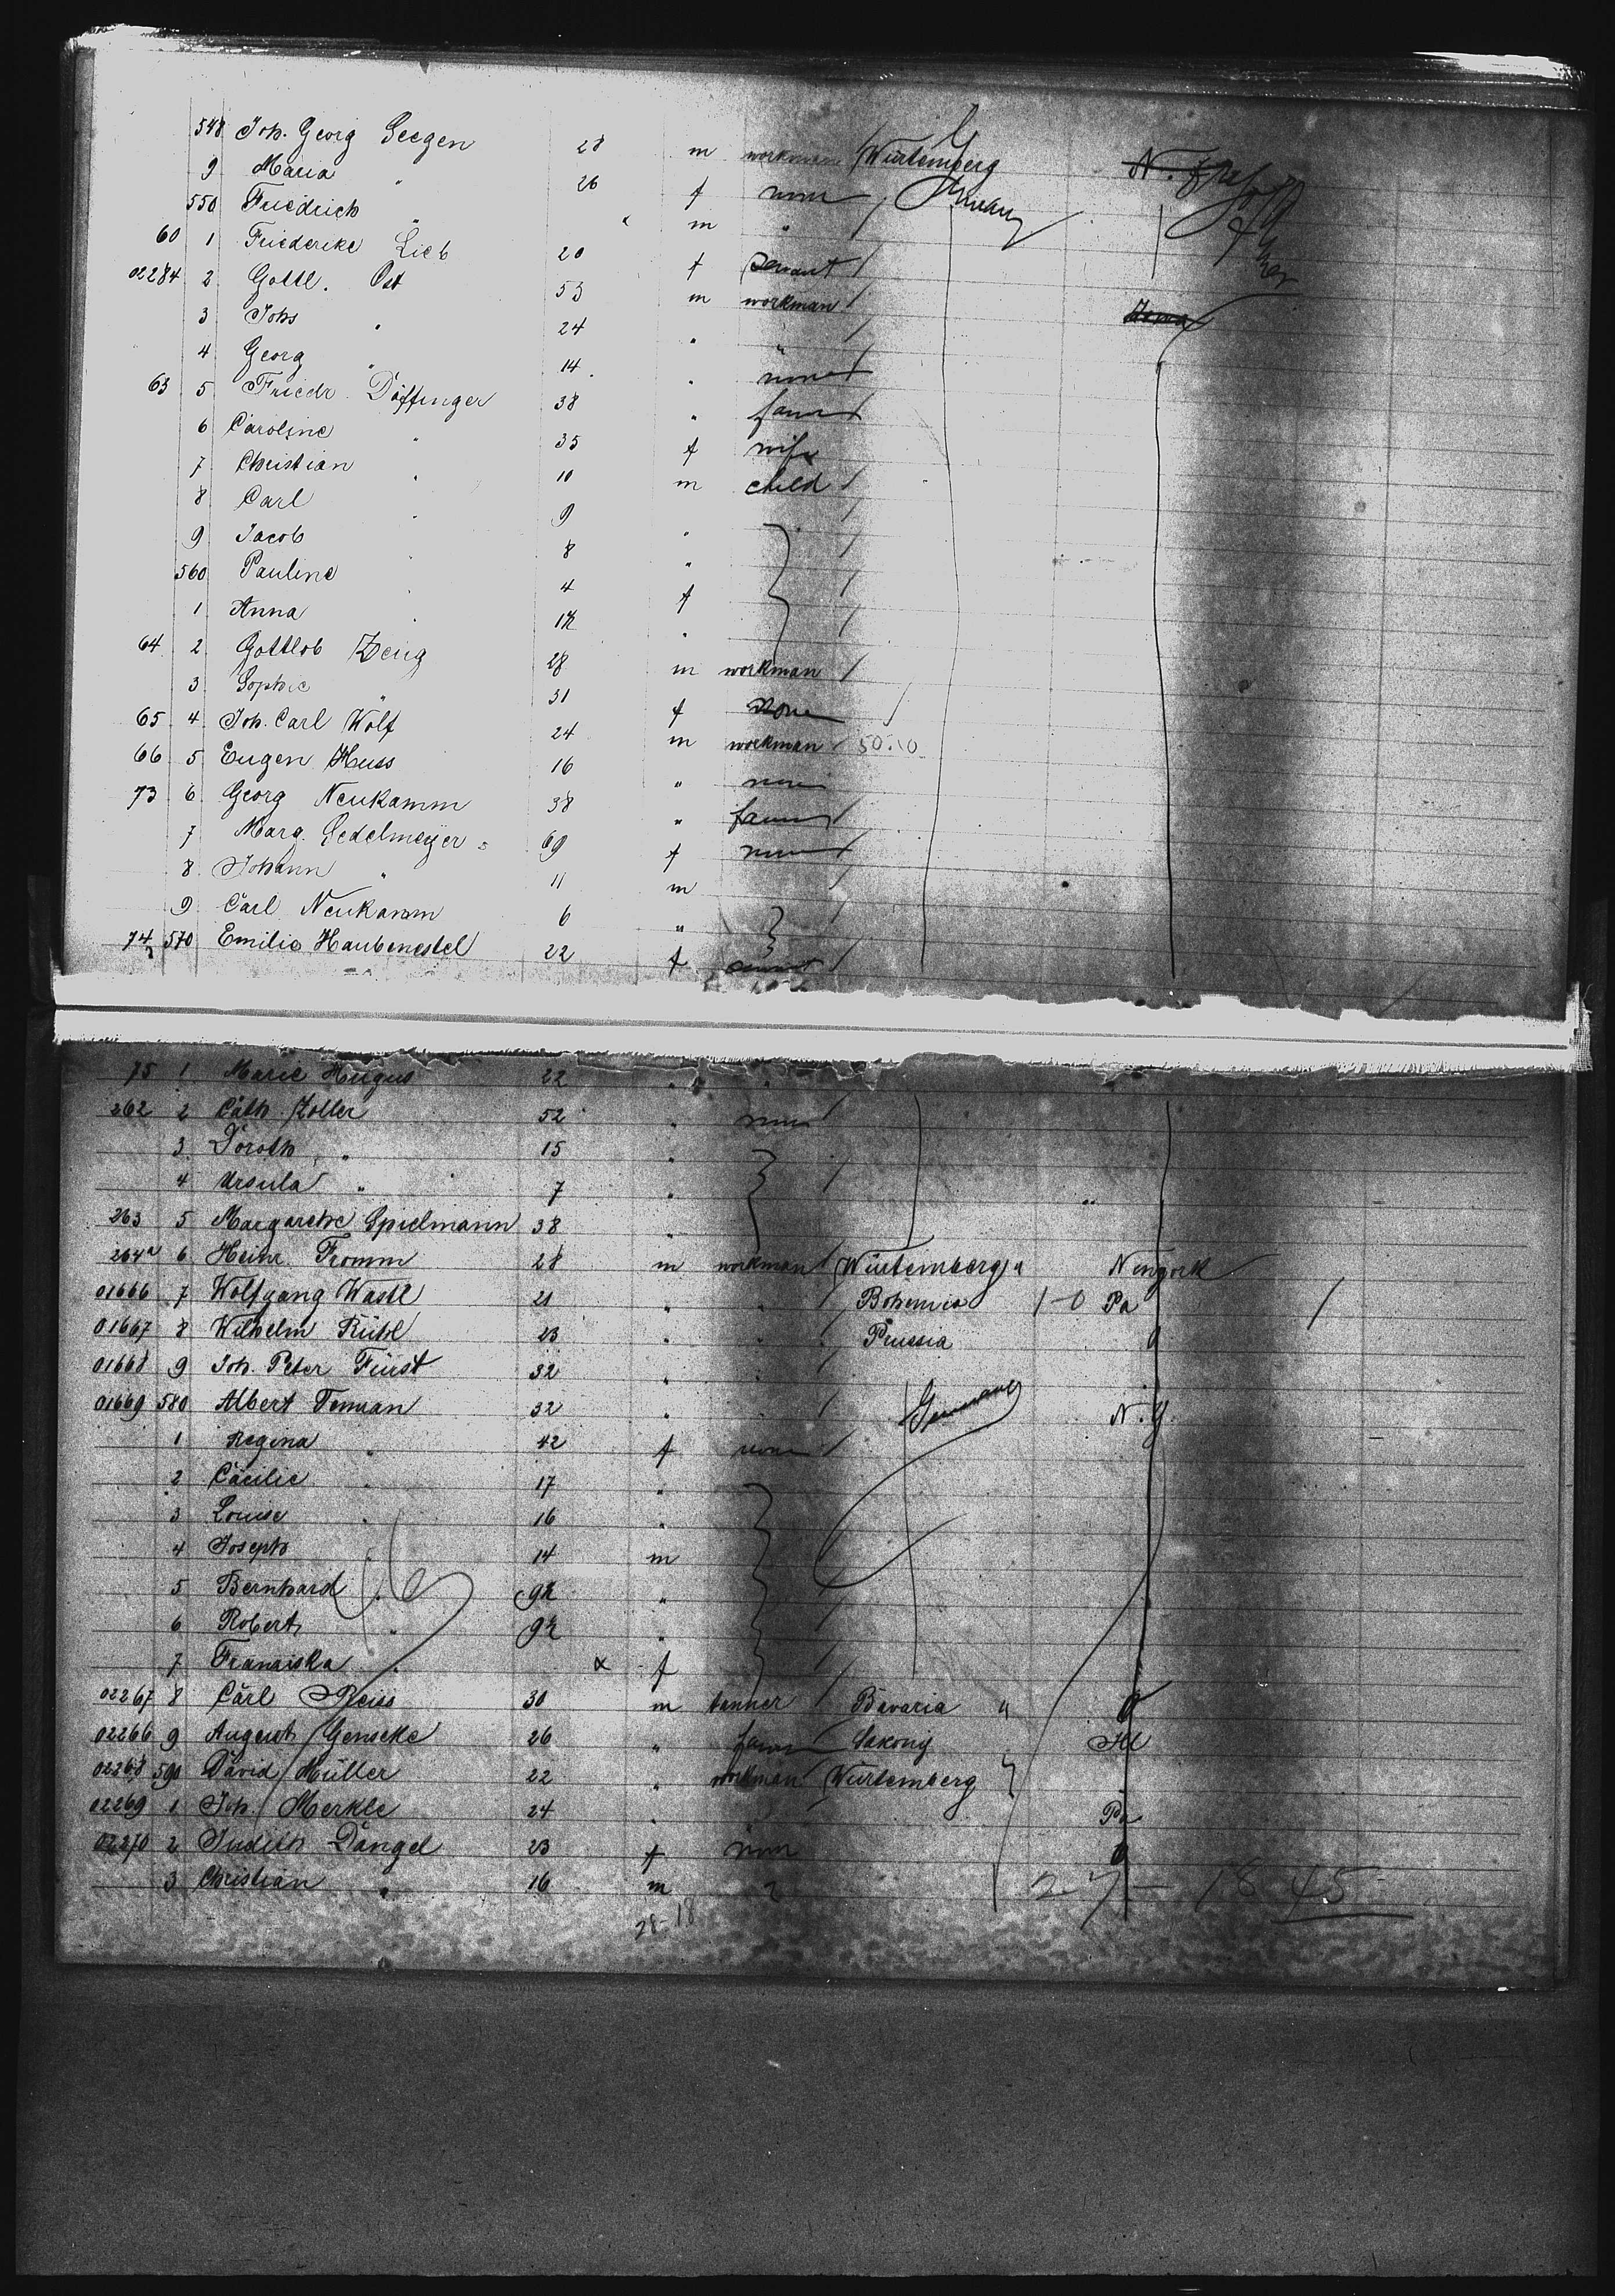 548 Joh. Georg Seegen 28 m workman Würtemberg
9 Maria " 26 f none
550 Friedrich " m "
60 1 Friederike Lieb 20 f servant
02284 2 Gottl. Ost 53 m workman
3 Johs " 24 " "
4 Georg " 14 " none
63 5 Friedr. Döffinger 38 " farmer
6 Caroline " 35 f wife
7 Christian " 10 m child
8 Carl " 9 "
9 Jacob " 8 "
560 Pauline " 4 f
1 Anna " "
64 2 Gottlob Zeug 28 m workman
3 Sophie " 31 f none
65 4 Joh. Carl Wolf 24 m workman
66 5 Eugen Huss 16 " none
73 6 Georg Neukamm 38 " farmer
7 Marg. Sedelmeyer 69 f none
8 Johann " 11 m
9 Carl Neukamm 6 "
74 570 Emilie Haubenestel 22 f servant
75 1 Marie Hugus 22 " "
262 2 Cath. Zoller 52 " none
3 Doroth. " 15 "
4 Ursula " 7 "
263 5 Margarethe Spielmann 38 "
264 6 Heinr. Fromm 28 m workman Würtemberg " Newyork
01666 7 Wolfgang Wastl 21 " " Bohemia Pa
01667 8 Wilhelm Rühl 23 " " Prussia
01668 9 Joh. Peter Fürst 32 " "
01669 580 Albert Teman 32 " " Germany N.Y.
1 Regina " 42 f none
2 Cäcilie " 17 "
3 Louise " 16 "
4 Joseph " 14 m
5 Bernhard " "
6 Robert " "
7 Franziska " f
02267 8 Carl Reiss 30 m tanner Bavaria "
02266 9 August Genseke 26 " farmer Saxony Ill
02268 590 David Müller 22 " workman Würtemberg
02269 1 Joh. Merkle 24 " Pa
02270 2 Judith Dangel 23 f none
3 Christian " 16 m
28-18 27 - 18 45